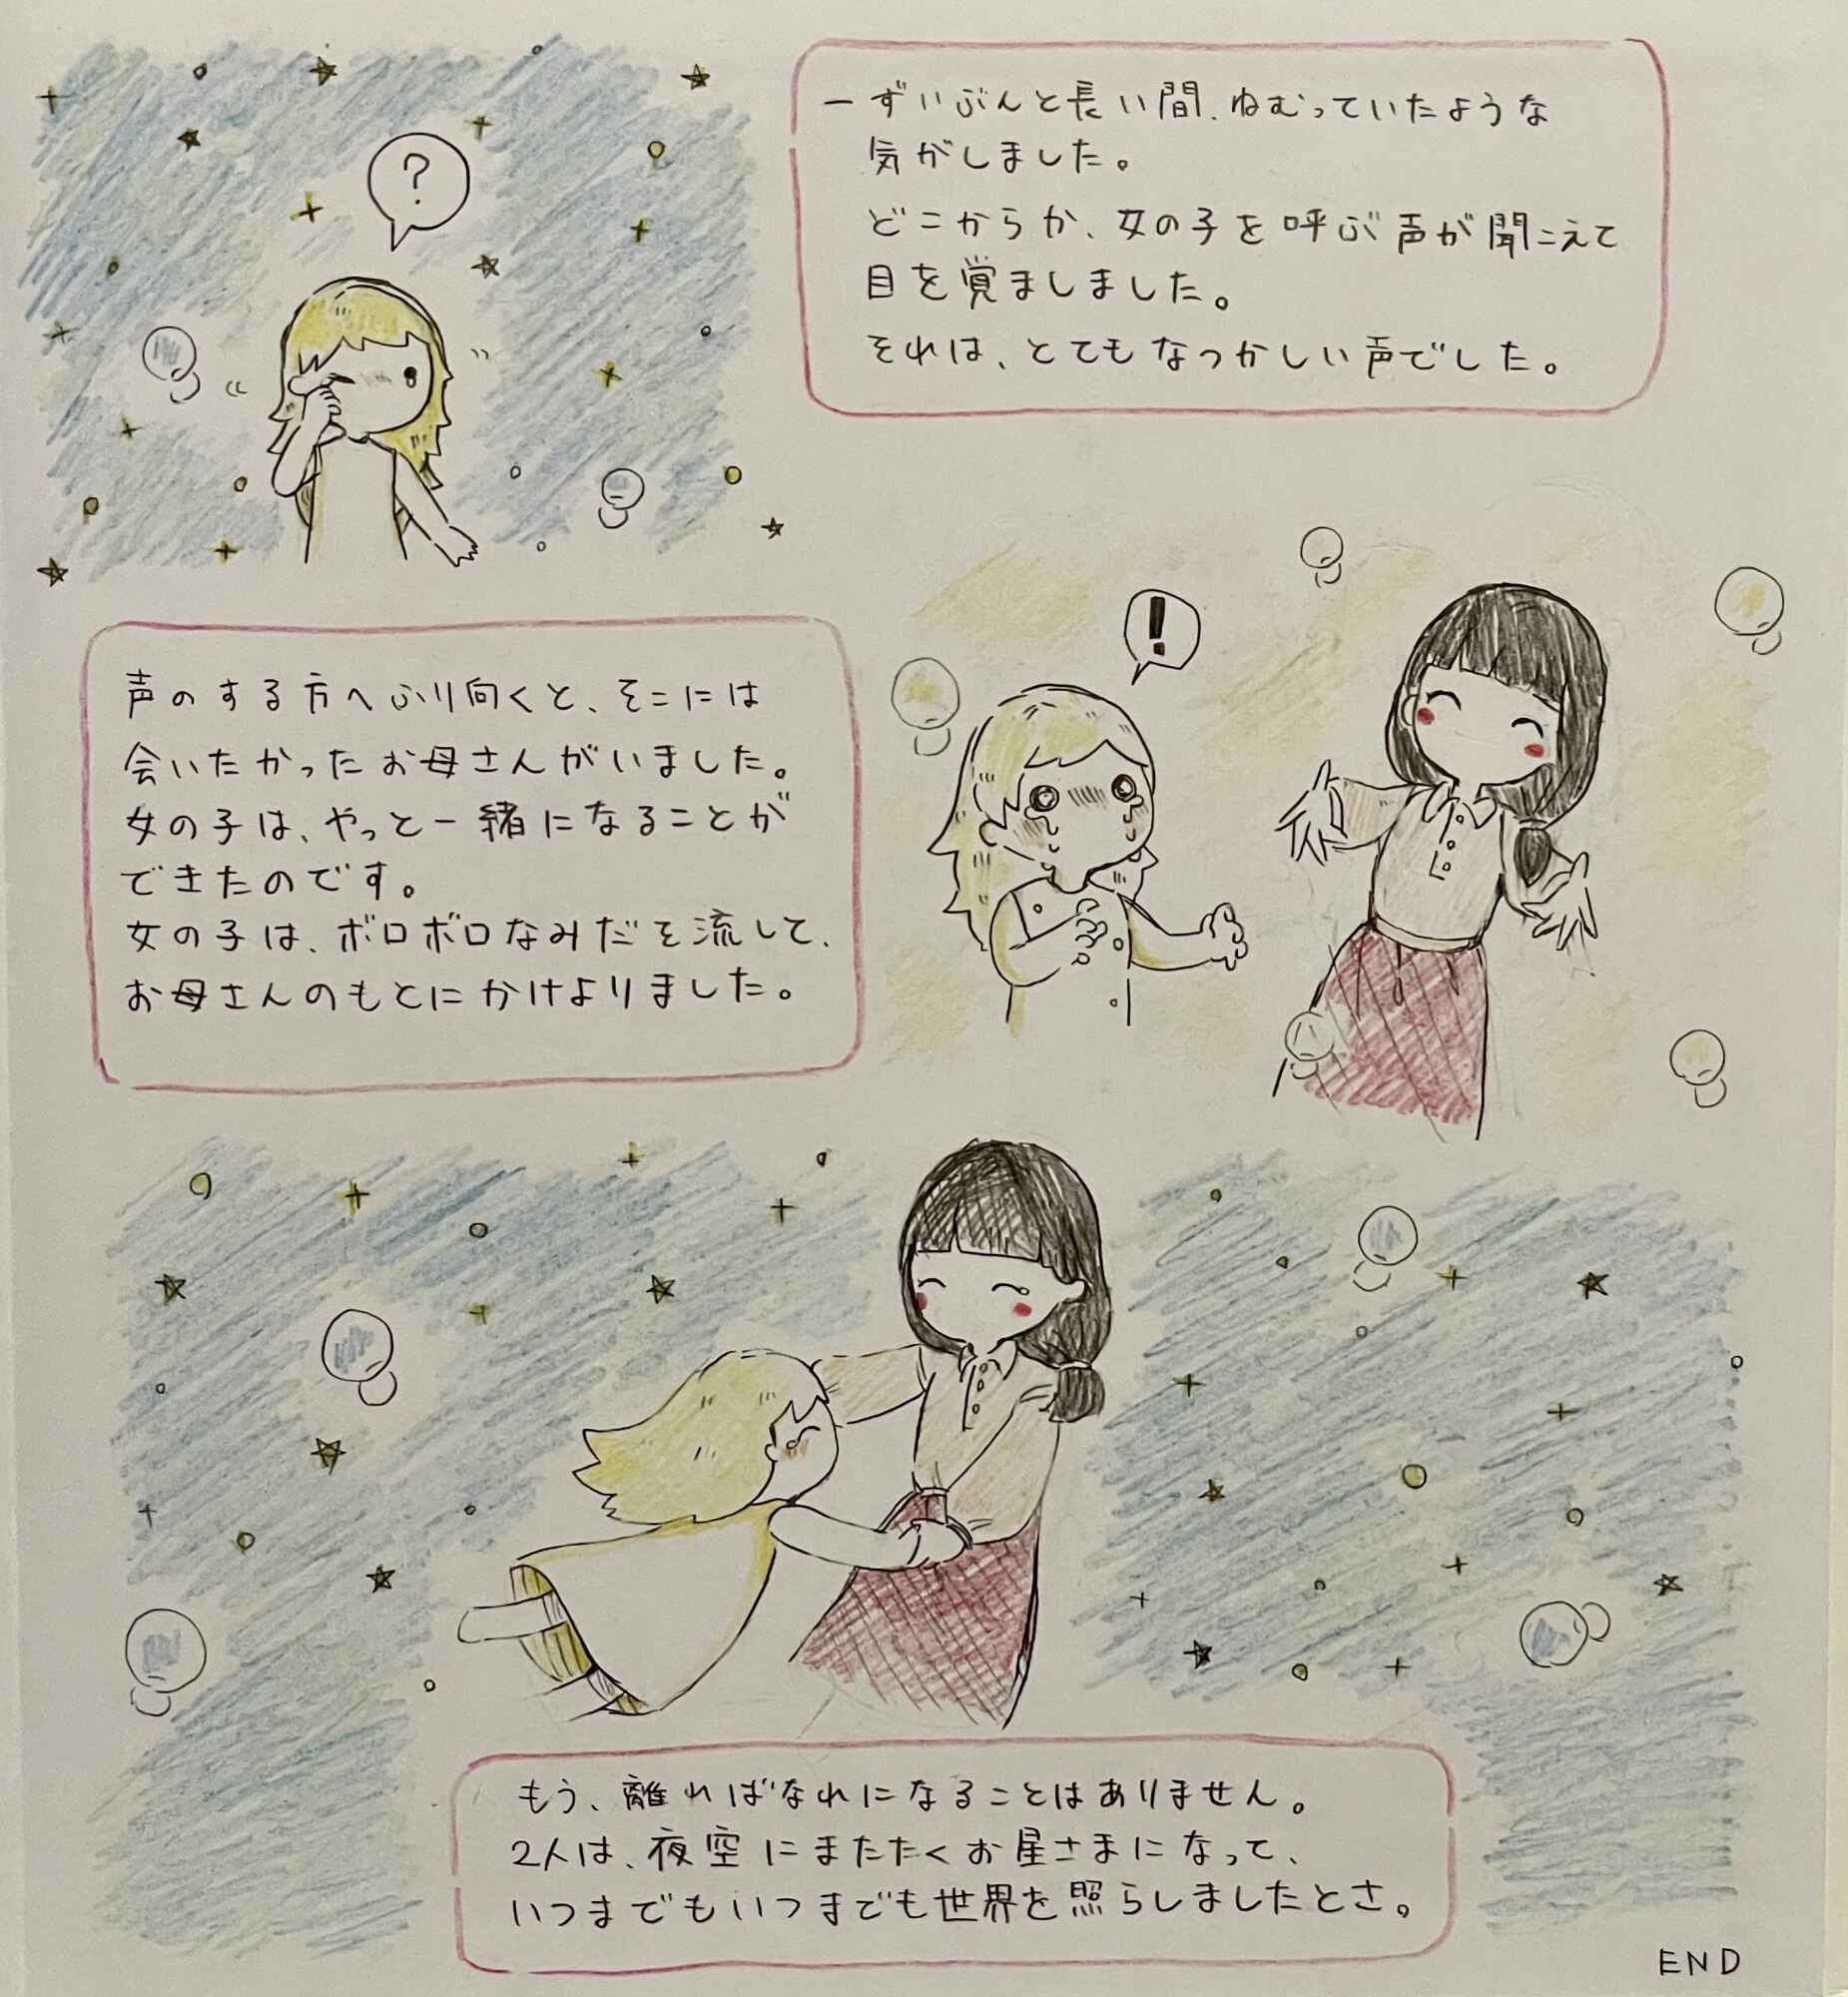 ?
ーずいぶんと長い間、ねむっていたような
気がしました。
どこからか、女の子を呼ぶ声が聞こえて
目を覚ましました。
それは、とてもなつかしい声でした。
!
声のする方へふり向くと、そこには
会いたかったお母さんがいました。
女の子は、やっと一緒になることが
できたのです。
女の子は、ボロボロなみだを流して、
お母さんのもとにかけよりました。
もう、離ればなれになることはありません。
2人は、夜空にまたたくお星さまになって、
いつまでもいつまでも世界を照らしましたとさ。
END